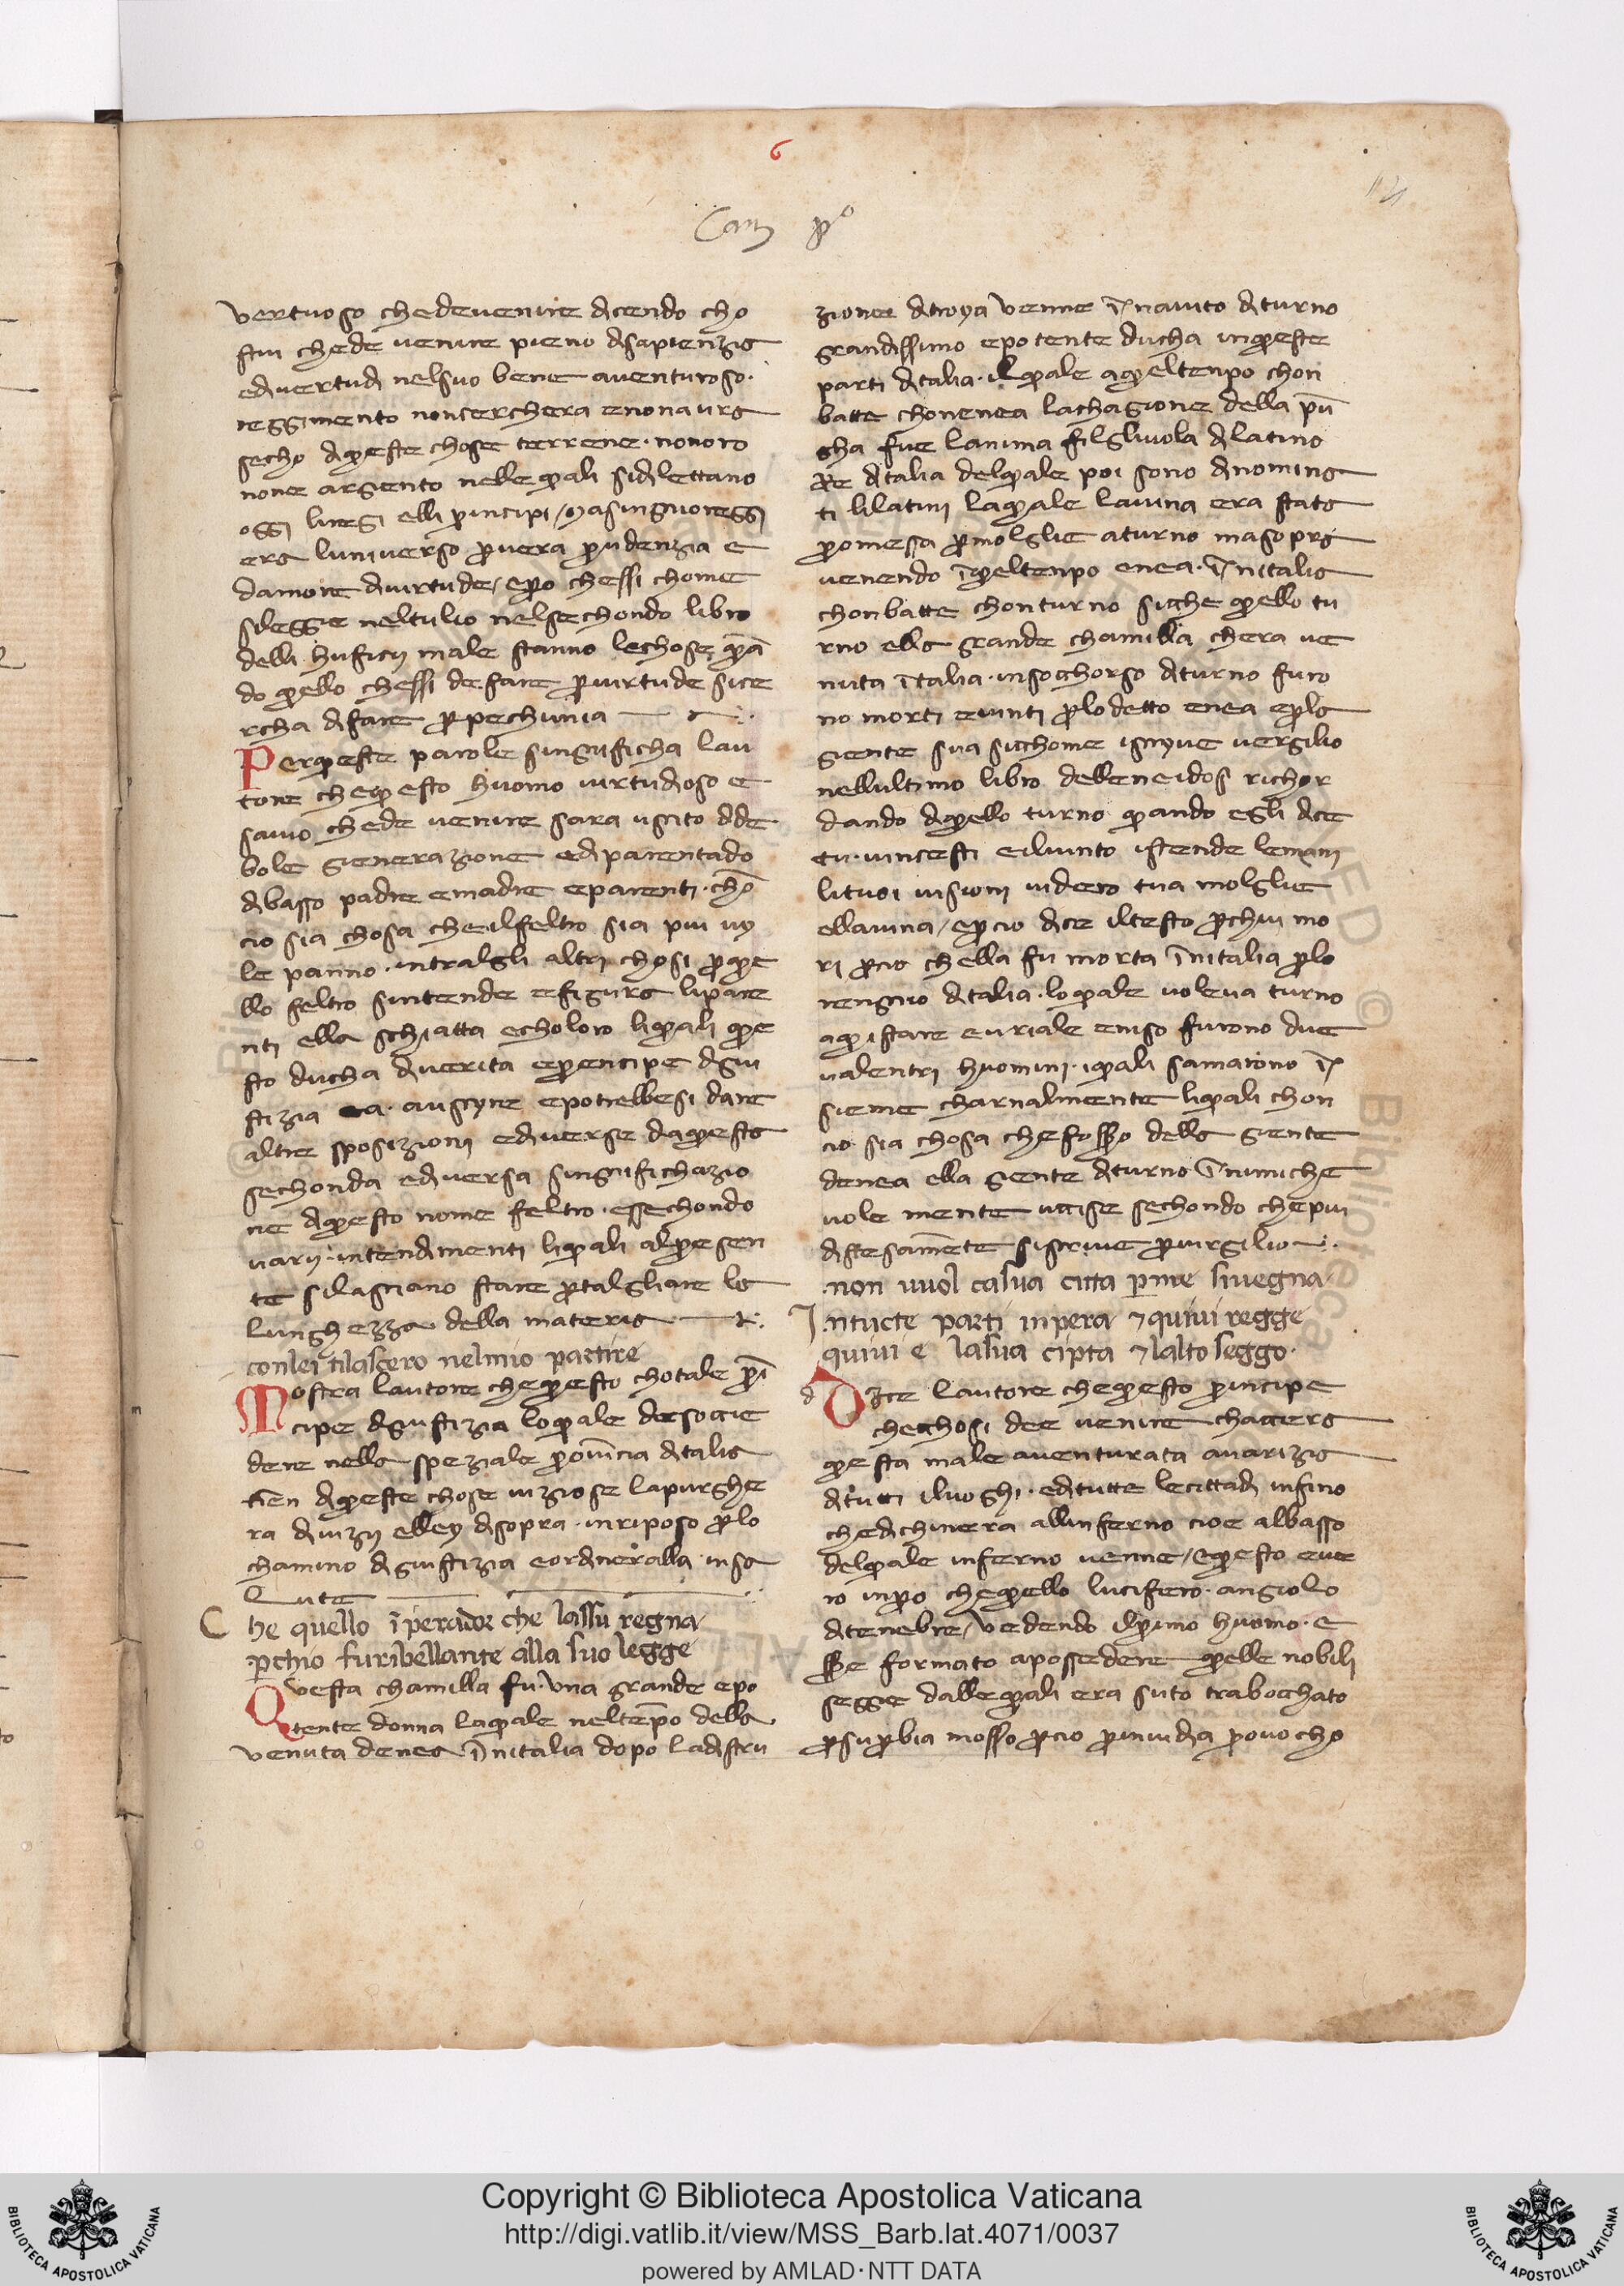 6
Cantº pº
vertuoso chedevenire dicendo cho
stui chede venire pieno disapienzia
edivertudi nelsuo bene aventuroso·
reggimento noncerchera enonavra
secho diqueste chose terrene· nonoro
none argento nelle quali sidilettano
oggi liregi elli principi / masingnioreggi
era luniverso pervera prudenzia e
damore divirtude / epero chessi chome
sileggie neltulio nelsechondo libro
delli huficij male stanno lechose quan
do quello chessi de fare pervirtude sice
rcha difare per pechunia
Perqueste parole singnificha lau
tore chequesto huomo virtudioso e
savio chede venire sara uscito dide
bole gienerazione edi parentado
dibasso padre emadre eparenti· chon
cio sia chosa cheilfeltro sia piu vi
le panno· intralgli altri chosi perque
llo feltro sintende efigura lipare
nti ella schiatta echoloro liquali que
sto ducha diverita eprencipe digiu
stizia a· auscire epotrebbesi dare
altre sposizioni ediverse daquesta
sechonda ediversa singnifichazio
ne diquesto nome feltro· essechondo
varij· intendimenti liquali alpresen
te silasciano stare pertalgliare la
lunghezza della materia
conlei tilascero nelmio partire
Mostra lautore chequesto chotale prin
cipe digiustizia loquale desoccie
dere nella speziale provincia ditalia
tien diqueste chose viziose lapurghe
ra divizij elley disopra· inriposo perlo
chamino digiustizia eordineralla insa
lute
Che quello inperador che lassu regna
perchio furibellante alla suo legge
Questa chamilla fu· una grande epo
tente donna laquale neltenpo della
venuta denea innitalia dopo ladistru
zione ditroya venne in naiuto diturno
grandissimo epotente ducha inqueste
parti ditalia· ilquale aqueltenpo chon
batte chonenea lachagione della pun
gha fue lanima filgliuola dilatino
Re ditalia delquale poi sono dinomina
ti lilatini laquale lavina era stata
promessa permolglie aturno masopra
venendo inqueltenpo enea· innitalia
chonbatte chonturno sicche quello tu
rno ella grande chamilla chera ve
nuta intalia· insocchorso diturno furo
no morti evinti perlodetto enea eperla
giente sua sicchome iscrive vergilio
nellultimo libro delleneidos richor
dando diquello turno quando egli dice
tu· vincesti eilvinto istende lemani
lituoi visioni videro tua molglie
ellavina / epercio dice iltesto perchui mo
ri percio chella fu morta innitalia perlo
rengnio ditalia· loquale voleva turno
aquistare euriale eniso furono due
valentri huomini· iquali samarono in
sieme charnalmente liquali chon
cio sia chosa chefosser della giente
denea ella giente diturno innimiche
vole mente uccise sechondo chepiu
distesamente siscrive pervirgilio
non vuol casua citta perme sivegna·
Intucte parti inpera 7quivi regge
quivi e lasua cipta 7lalto seggo·
d Dice lautore chequesto principe
checchosi dee venire chacciera
questa male aventurata avarizia
ditutti iluoghi· editutte lecittadi infino
chedichinera allinferno cioe albasso
delquale inferno venne / equesto eve
ro inpero chequello lucifiero· angiolo
ditenebre / vedendo ilprimo huomo· e
sser formato apossedere quelle nobili
seggie dallequali era suto trabocchato
persuperbia mosso percio perinvidia provocho
Copyright © Biblioteca Apostolica Vaticana
http://digi.vatlib.it/view/MSS_Barb.lat.4071/0037
powered by AMLAD·NTT DATA
BIBLIOTECA APOSTOLICA VATICANA
BIBLIOTECA APOSTOLICA VATICANA